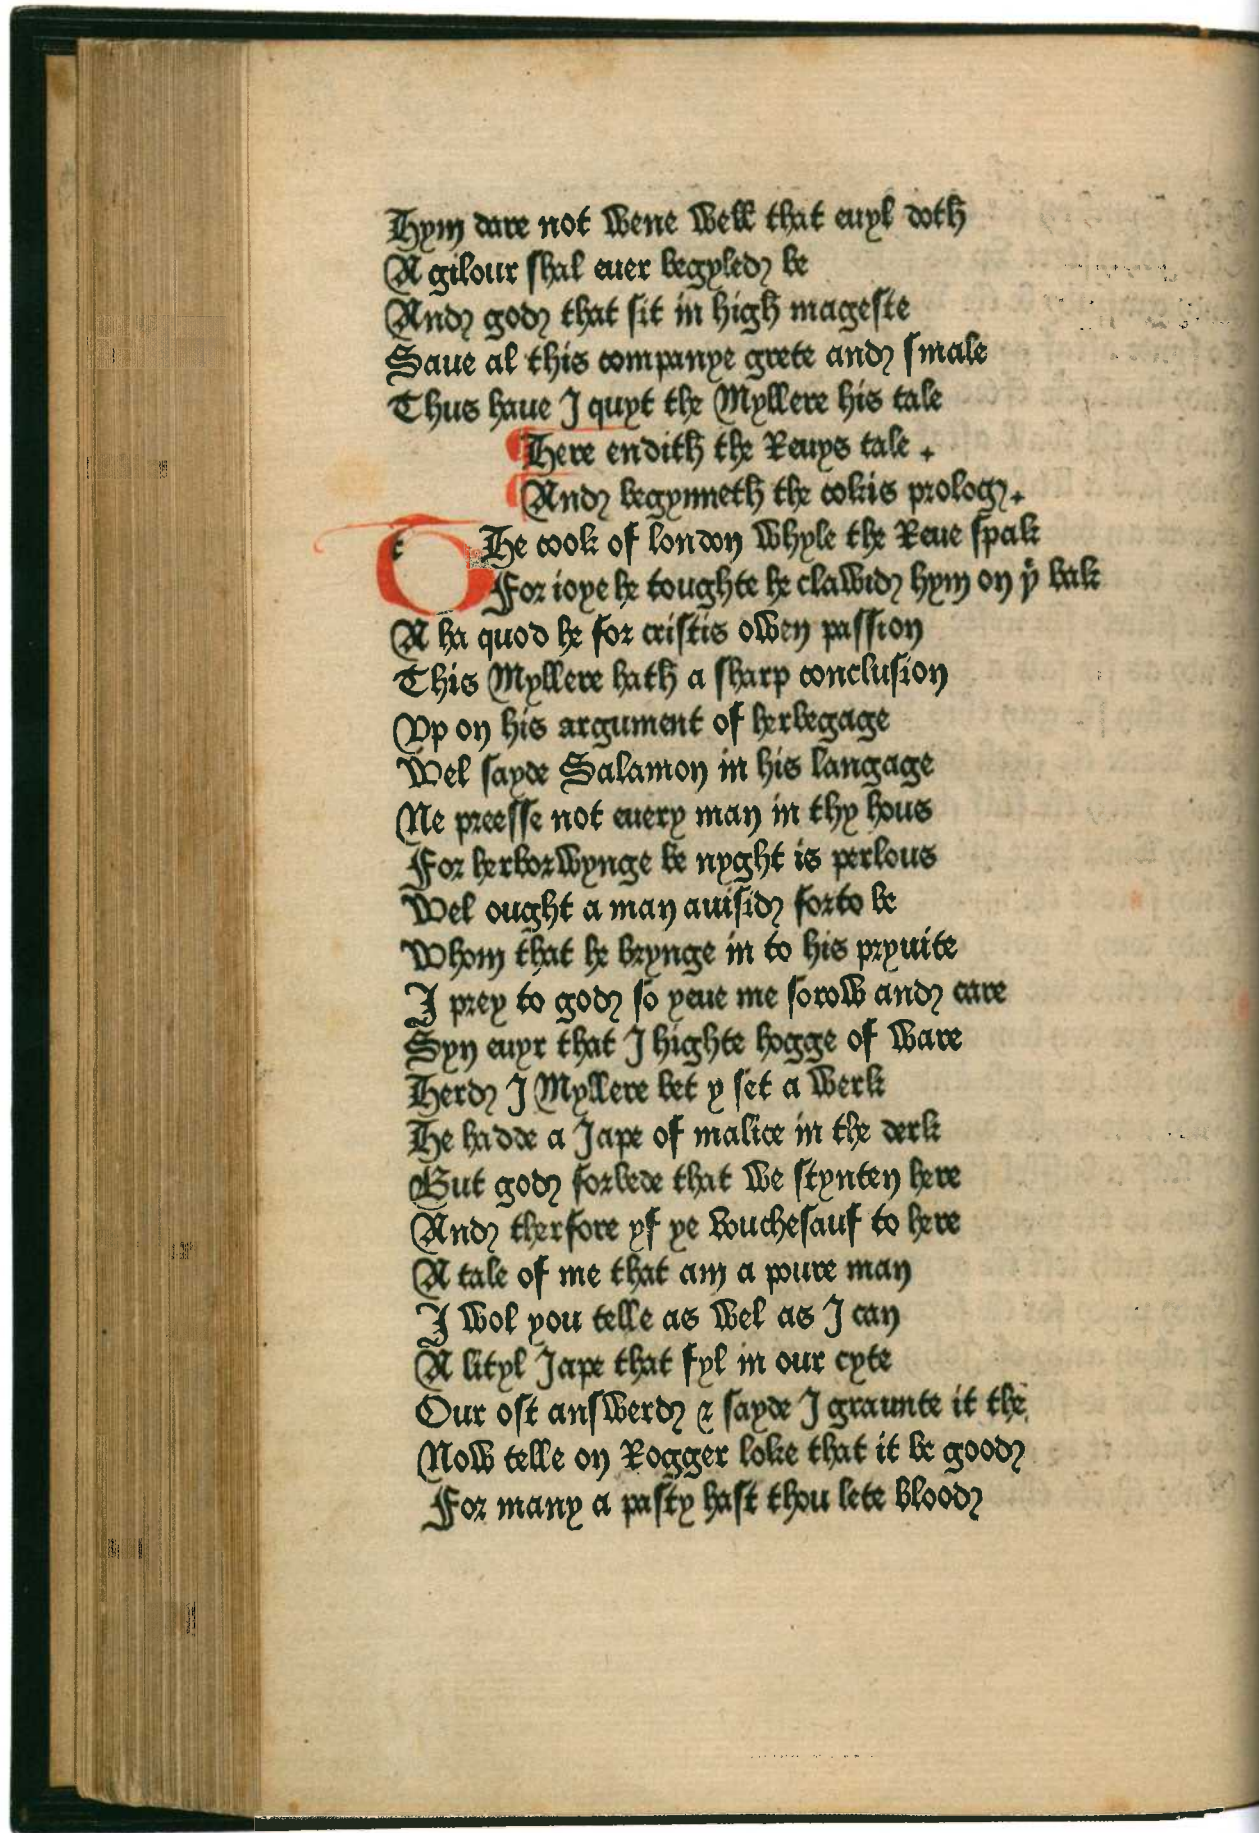 Hym dare not wene well that euyl doth
A gilour shal euer begyled be
And god that sit in high mageste
Saue al this companye grete and smale
Thus haue I quyt the Myllere his tale
Here endith the Reuys tale .
And begynneth the cokis prolog .
The cook of london whyle the Reue spak
For ioye he toughte he clawid hym on yͤ bak
A ha quod he for cristis owen passion
This Myllere hath a sharp conclusion
Vp on his argument of herbegage
Wel sayde Salamon in his langage
Ne preesse not euery man in thy hous
For herborwynge be nyght is perlous
Wel ought a man auisid forto be
Whom that he brynge in to his pryuite
I prey to god so yeue me sorow and care
Syn euyr that I highte hogge of ware
Herd I Myllere bet y set a werk
He hadde a Jape of malice in the derk
But god forbede that we stynten here
And therfore yf ye vouchesauf to here
A tale of me that am a poure man
I wol you telle as wel as I can
A lityl Jape that fyl in our cyte
Our ost answerd & sayde I graunte it the
Now telle on Rogger loke that it be good
For many a pasty hast thou lete blood